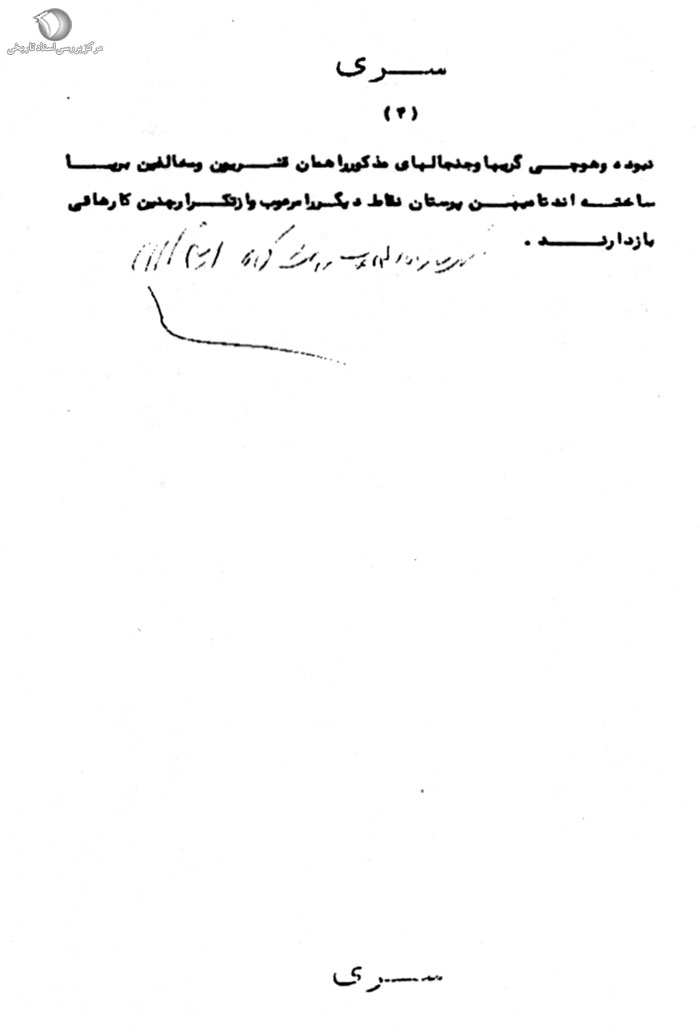 مرکز بررسی اسناد تاریخی
سری
(۴)
نبوده و هوچی گریها و جنجالهای مذکور را همان قشریون و مخالفین برپا
ساخته اند تا میهن پرستان نقاط دیگر را مرعوب و از تکرار چنین کارهائی
بازدارند .
سری